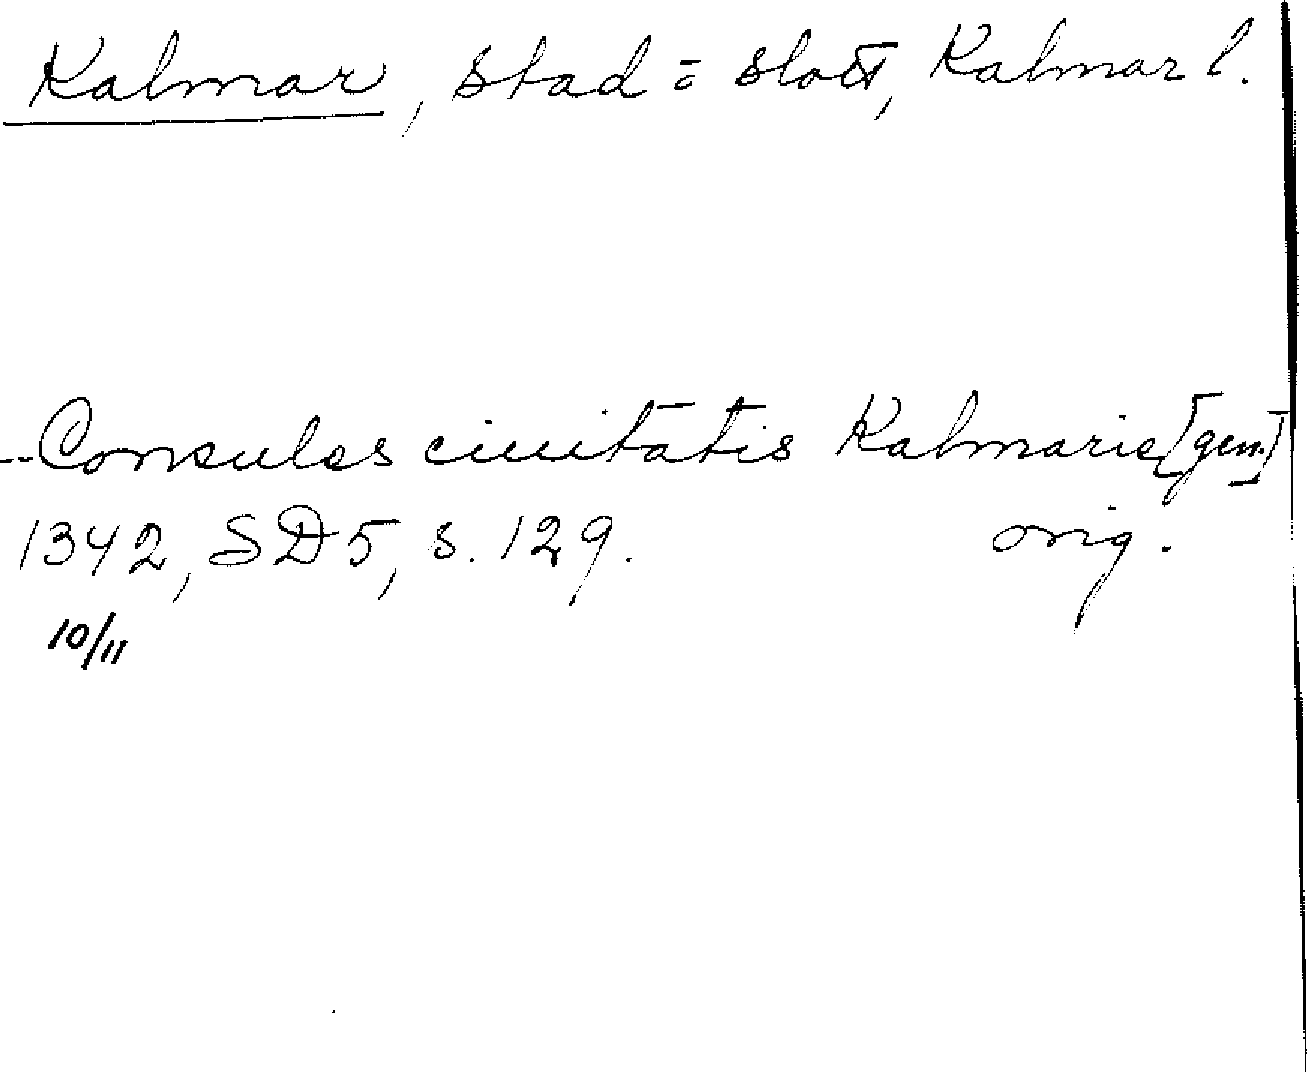 Kalmar, stad o slott, Kalmar l.
--Consules ciuitatis Kalmarie [gen.]
1342, SD5, s. 129. orig.
10/11